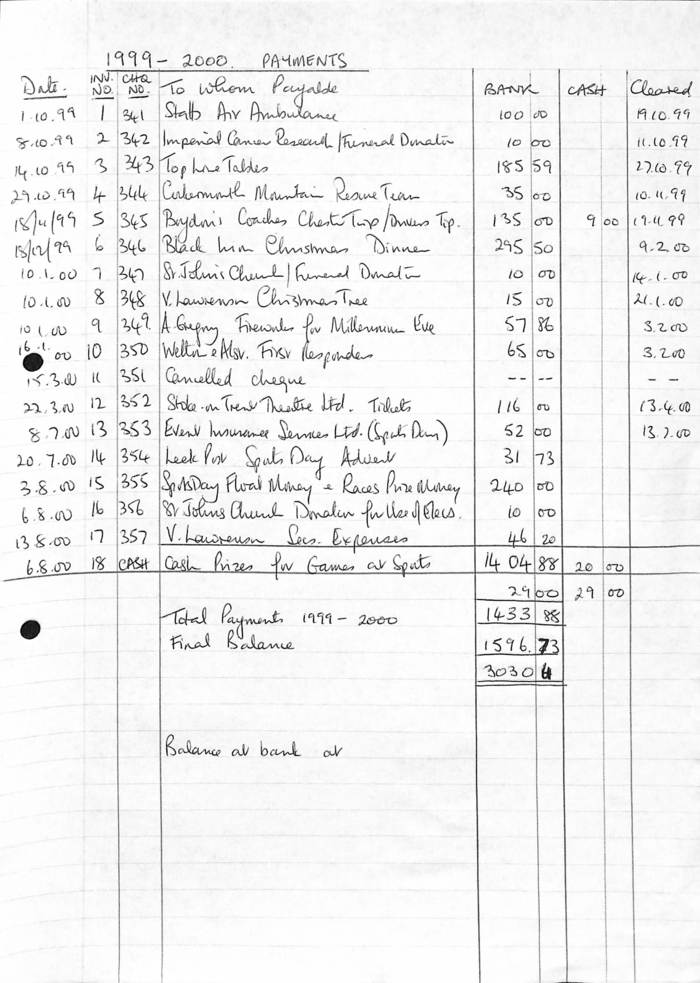 1999 - 2000. PAYMENTS
Date. INV. NO. CHQ NO. To Whom Payable BANK CASH Cleared
1.10.99 1 341 Staffs Air Ambulance 100 00 19.10.99
8.10.99 2 342 Imperial Cancer Research / Funeral Donation 10 00 11.10.99
14.10.99 3 343 Top Line Tables 185 59 27.10.99
29.10.99 4 344 Cockermouth Mountain Rescue Team 35 00 10.11.99
18/11/99 5 345 Brydon's Coaches Chester Trip/Drivers Tip. 135 00 9 00 19.11.99
15/12/99 6 346 Black Lion Christmas Dinner 295 50 9.2.00
10.1.00 7 347 St. John's Church / Funeral Donation 10 00 14.1.00
10.1.00 8 348 V. Lawrenson Christmas Tree 15 00 21.1.00
10.1.00 9 349 A. Gregory Fireworks for Millennium Eve 57 86 3.2.00
16.1.00 10 350 Welton & Alsr. First Responders 65 00 3.2.00
15.3.00 11 351 Cancelled cheque -- -- - -
22.3.00 12 352 Stoke-on-Trent Theatre Ltd. Tickets 116 00 13.4.00
8.7.00 13 353 Event Insurance Services Ltd. (Sports Day) 52 00 13.7.00
20.7.00 14 354 Leek Post Sports Day Advert 31 73
3.8.00 15 355 Sports Day Float Money & Races Prize Money 240 00
6.8.00 16 356 St Johns Church Donation for Use of Elecs. 10 00
13.8.00 17 357 V. Lawrenson Secs. Expenses 46 20
6.8.00 18 CASH Cash Prizes for Games at Sports 1404 88 20 00
29 00 29 00
Total Payments 1999 - 2000 1433 88
Final Balance 1596.73
3030 4
Balance at bank at